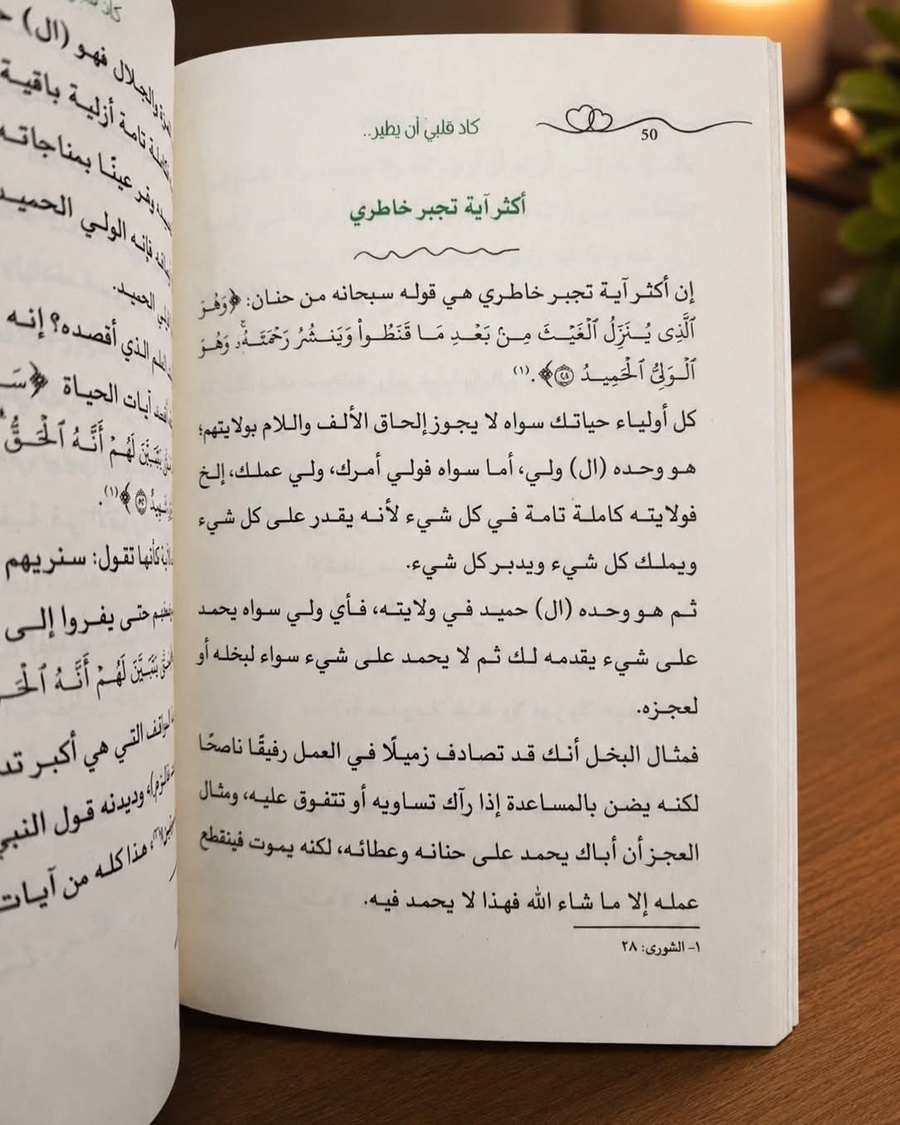 50
كاد قلبي أن يطير..
أكثر آية تجبر خاطري
إن أكثر آية تجبر خاطري هي قوله سبحانه من حنان: ﴿وَهُوَ
ٱلَّذِى يُنَزِّلُ ٱلْغَيْثَ مِنۢ بَعْدِ مَا قَنَطُوا۟ وَيَنشُرُ رَحْمَتَهُۥۚ وَهُوَ
ٱلْوَلِىُّ ٱلْحَمِيدُ ٢٨﴾.(١)
كل أولياء حياتك سواه لا يجوز إلحاق الألف واللام بولايتهم؛
هو وحده (ال) ولي، أما سواه فولي أمرك، ولي عملك، إلخ
فولايته كاملة تامة في كل شيء لأنه يقدر على كل شيء
ويملك كل شيء ويدبر كل شيء.
ثم هو وحده (ال) حميد في ولايته، فأي ولي سواه يحمد
على شيء يقدمه لك ثم لا يحمد على شيء سواء لبخله أو
لعجزه.
فمثال البخل أنك قد تصادف زميلًا في العمل رفيقًا ناصحًا
لكنه يضن بالمساعدة إذا رآك تساويه أو تتفوق عليه، ومثال
العجز أن أباك يحمد على حنانه وعطائه، لكنه يموت فينقطع
عمله إلا ما شاء الله فهذا لا يحمد فيه.
١- الشورى: ٢٨
والجلال فهو (ال)
تامة أزلية باقية
وقر عينًا بمناجاته
فإنه الولي الحميد
الحميد.
الذي أقصده؟ إنه
آيات الحياة ﴿
يَتَبَيَّنَ لَهُمْ أَنَّهُ ٱلْحَقُّ
﴾(١).
كأنها تقول: سنريهم
حتى يفروا إلى
يَتَبَيَّنَ لَهُمْ أَنَّهُ
التي هي أكبر
وديدنه قول
هذا كله من آيات